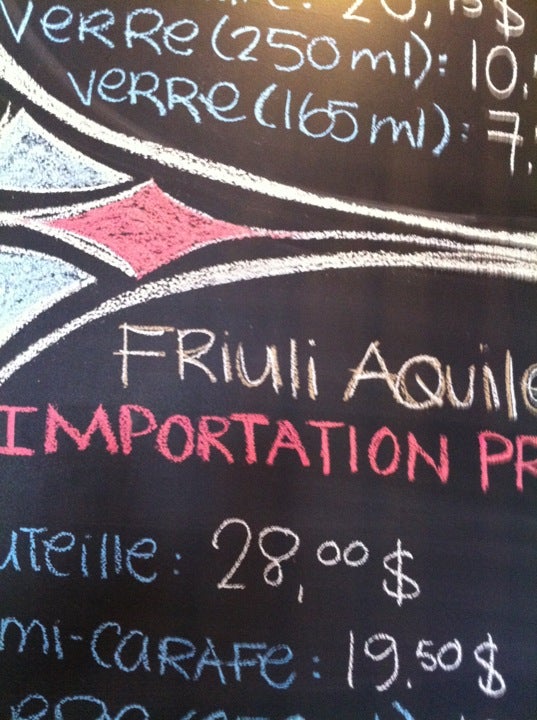 20,
VERRE (250ml): 10.
VERRE (165ml): 7.
FRIULI AQUILE
IMPORTATION PR
UTEILLE: 28,00$
MI-CARAFE: 19.50$